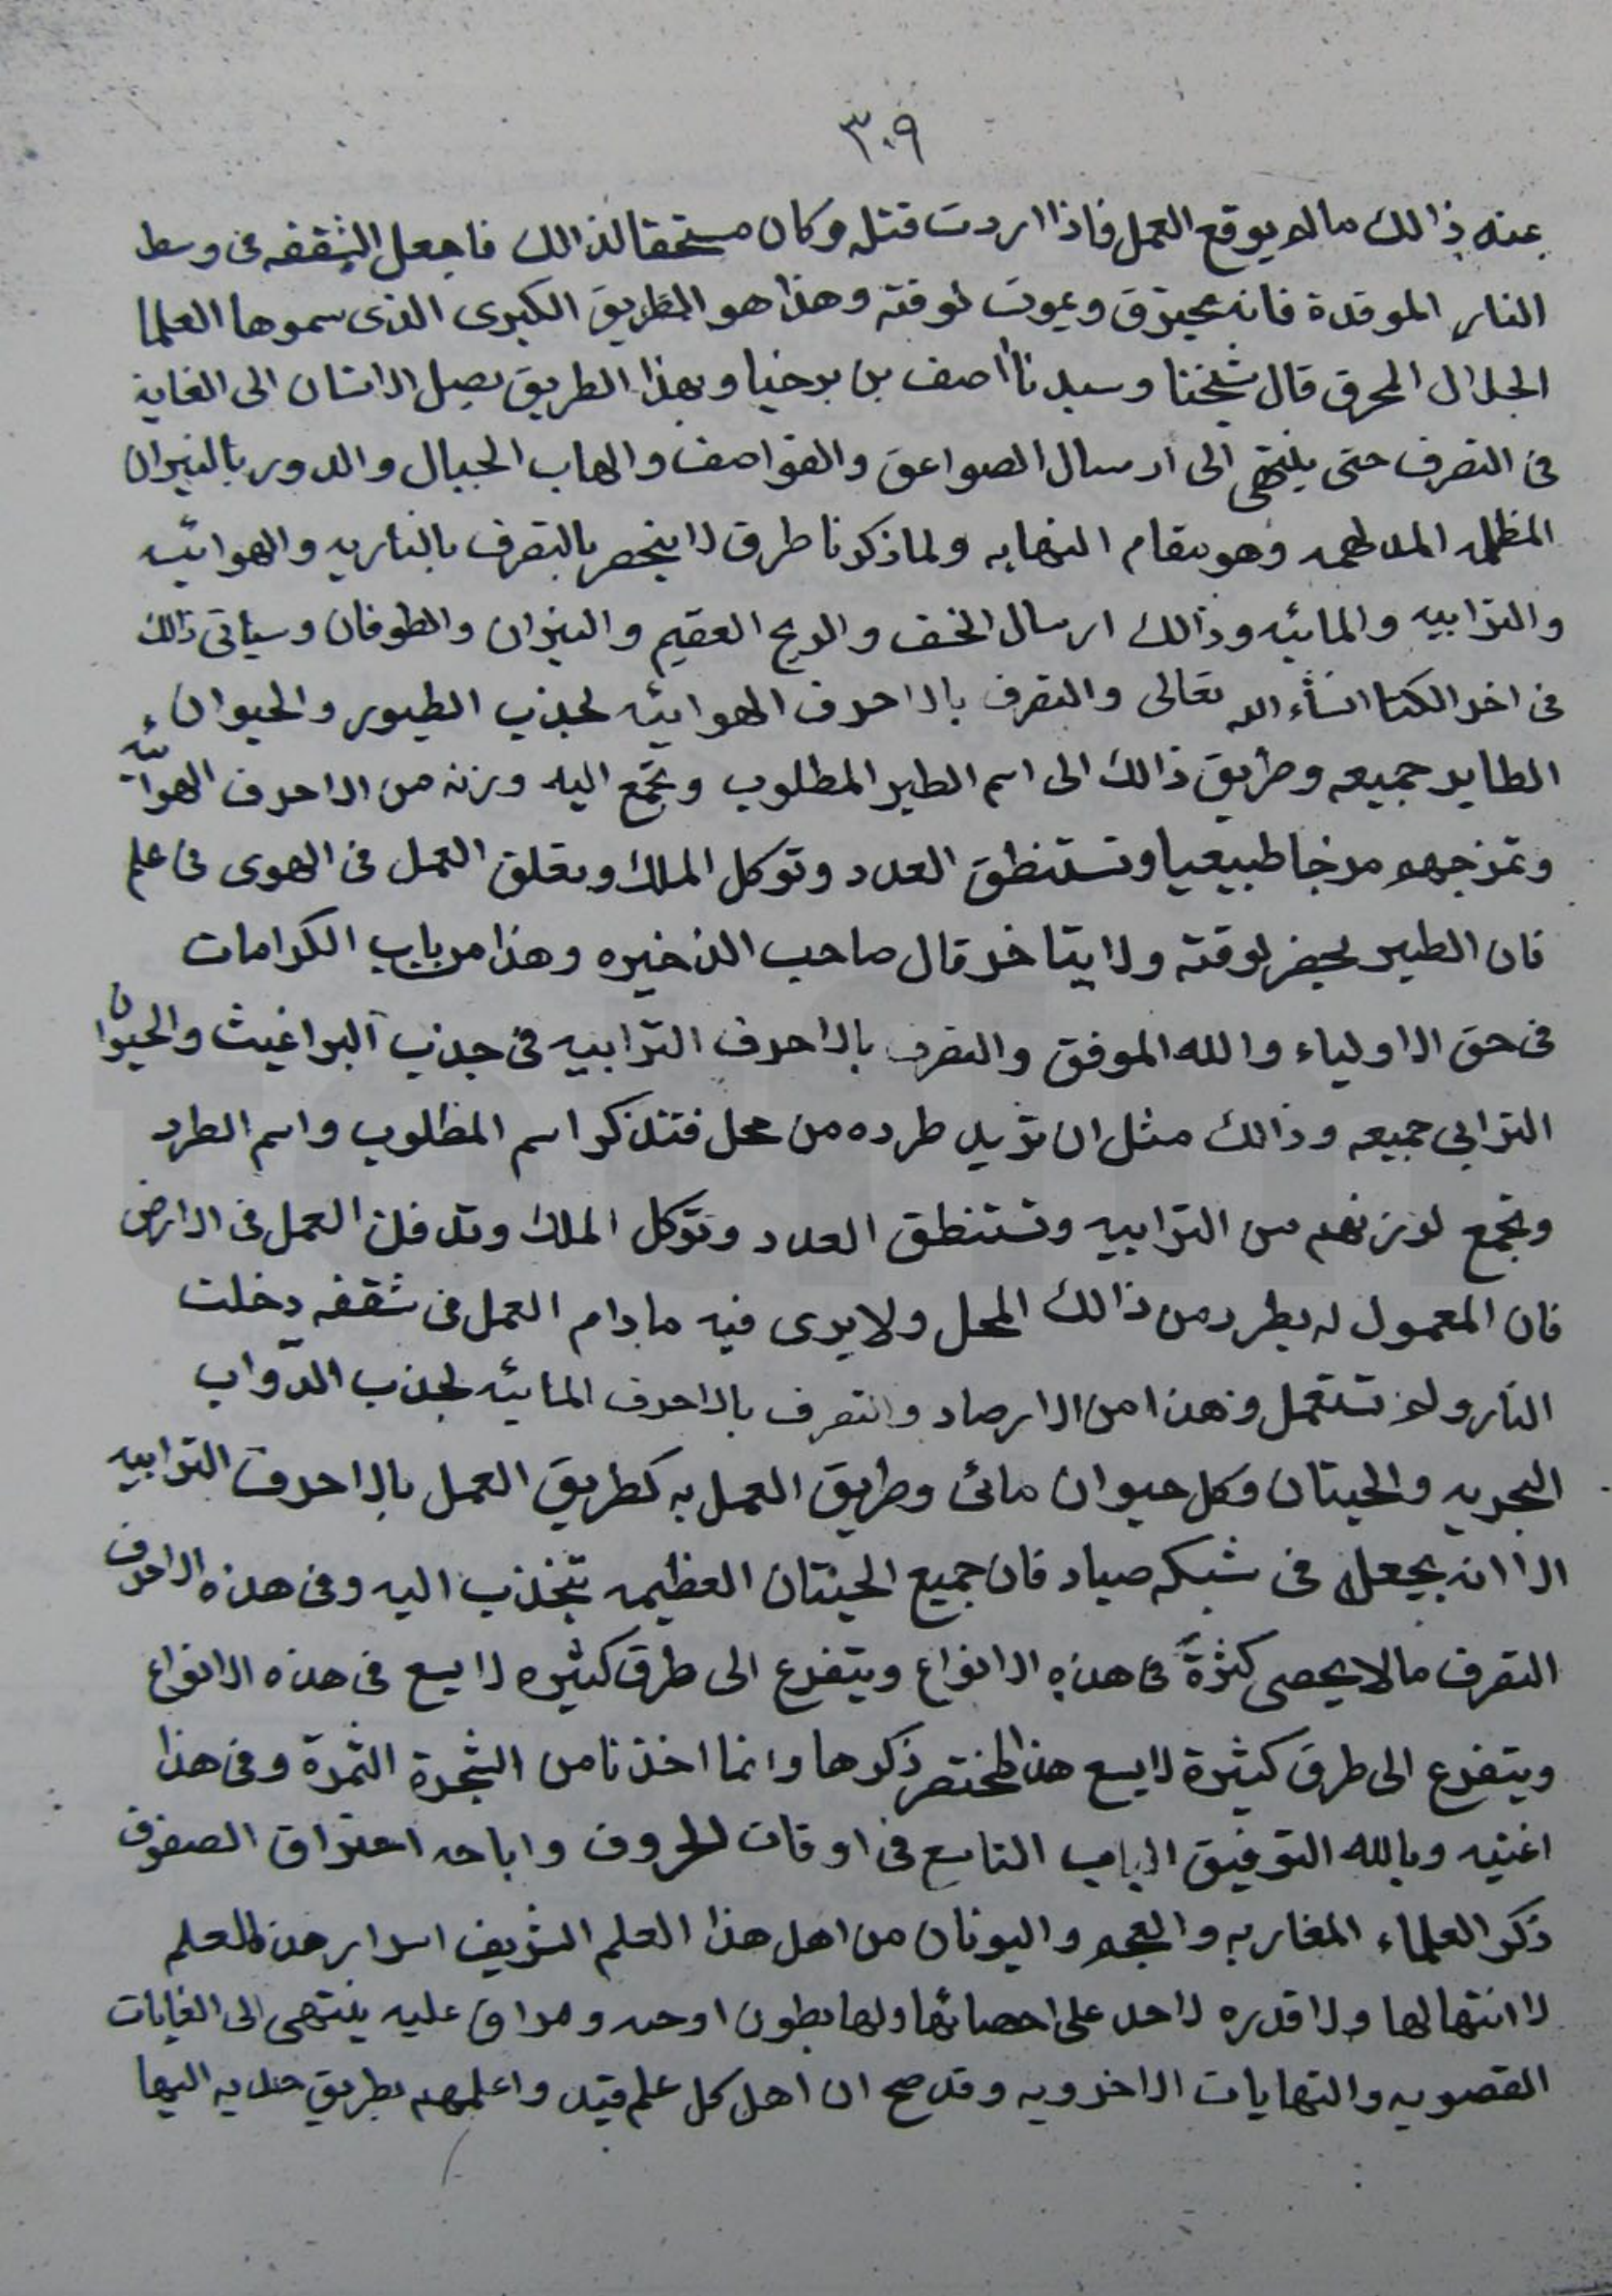 ٣٠٩
عنه ذالك مالم يوقع العمل فاذا اردت قتله وكان مستحقا لذالك فاجعل الشقفه فى وسط
النار الموقدة فانه يحترق ويموت لوقته وهذا هو الطريق الكبرى الذى سموها العلما
الجلال المحرق قال شيخنا وسيدنا أصف بن برخيا وبهذا الطريق يصل الانسان الى الغاية
فى التصرف حتى ينتهى الى ارسال الصواعق والقواصف والهاب الجبال والدور بالنيران
المظلمه المدلهمه وهو مقام النهايه ولما ذكرنا طرق لا ينحصر بالتصرف بالناريه والهوائيه
والترابيه والمائيه وذالك ارسال الخسف والريح العقيم والنيران والطوفان وسياتى ذالك
فى اخر الكتا انشاء الله تعالى والتصرف بالاحرف الهوائيه لجذب الطيور والحيوان
الطاير جميعه وطريق ذالك الى اسم الطير المطلوب وتجمع اليه وزنه من الاحرف الهوائيه
وتمزجهم مزجا طبيعيا وتستنطق العدد وتوكل الملك وتعلق العمل فى الهوى فى علم
فان الطير يحضر لوقته ولا يتاخر قال صاحب الذخيره وهذا من باب الكرامات
فى حق الاولياء والله الموفق والتصرف بالاحرف الترابيه فى جذب البراغيث والحيوان
الترابى جميعه وذالك مثل ان تريد طرده من محل فتذكر اسم المطلوب واسم الطرد
وتجمع لوزنهم من الترابيه وتستنطق العدد وتوكل الملك وتدفن العمل فى الارض
فان المعمول له يطرد من ذالك المحل ولا يرى فيه مادام العمل فى شقفه دخلت
النار ولم تستعمل وهذا من الارصاد والتصرف بالاحرف المائيه لجذب الدواب
البحريه والحيتان وكل حيوان مائى وطريق العمل به كطريق العمل بالاحرف الترابيه
الا انه يجعل فى شبكه صياد فان جميع الحيتان العظيمه تنجذب اليه وفى هذه الاحرف
التصرف مالا يحصى كثرة فى هذه الانواع ويتفرع الى طرق كثيره لا يسع فى هذه الانواع
ويتفرع الى طرق كثيرة لا يسع هذا المختصر ذكرها وانما اخذنا من الشجرة الثمرة وفى هذا
اغنيه وبالله التوفيق الباب التاسع فى اوقات الحروف واباحه احتراق الصفوف
ذكر العلماء المغاربه والعجم واليونان من اهل هذا العلم الشريف اسرار هذا العلم
لا انتها لها ولا قدره لاحد على احصائها ولها بطون اوحه ومراق عليه ينتهى الى الغايات
القصويه والنهايات الاخرويه وقد صح ان اهل كل علم قيد واعلمهم بطريق اليها